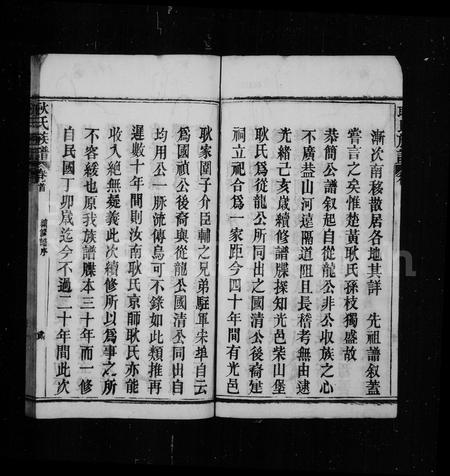 漸次南移散居各地其詳 先祖譜敘蓋
嘗言之矣惟楚黃耿氏孫枝獨盛故
恭簡公譜敘起自從龍公非公取族之心
不廣益山河遠隔道阻且長稽考無由逮
光緒己亥歲續修譜牒探知光邑柴山堡
耿氏為從龍公所同出之國清公後裔建
祠立祀合為一家距今四十年間有光邑
耿家圍子介臣輔之兄弟駐軍宋埠自云
為國禎公後裔與從龍公國清公同出自
均用公一脈流傳烏可不錄如此類推再
遲數十年間則汝南耿氏京師耿氏亦能
收入絕無疑義此次續修所以為事之所
不容緩也原我族譜牒本三十年而一修
自民國丁卯歲迄今不過二十年間此次
耿氏族譜 卷首
續修譜序